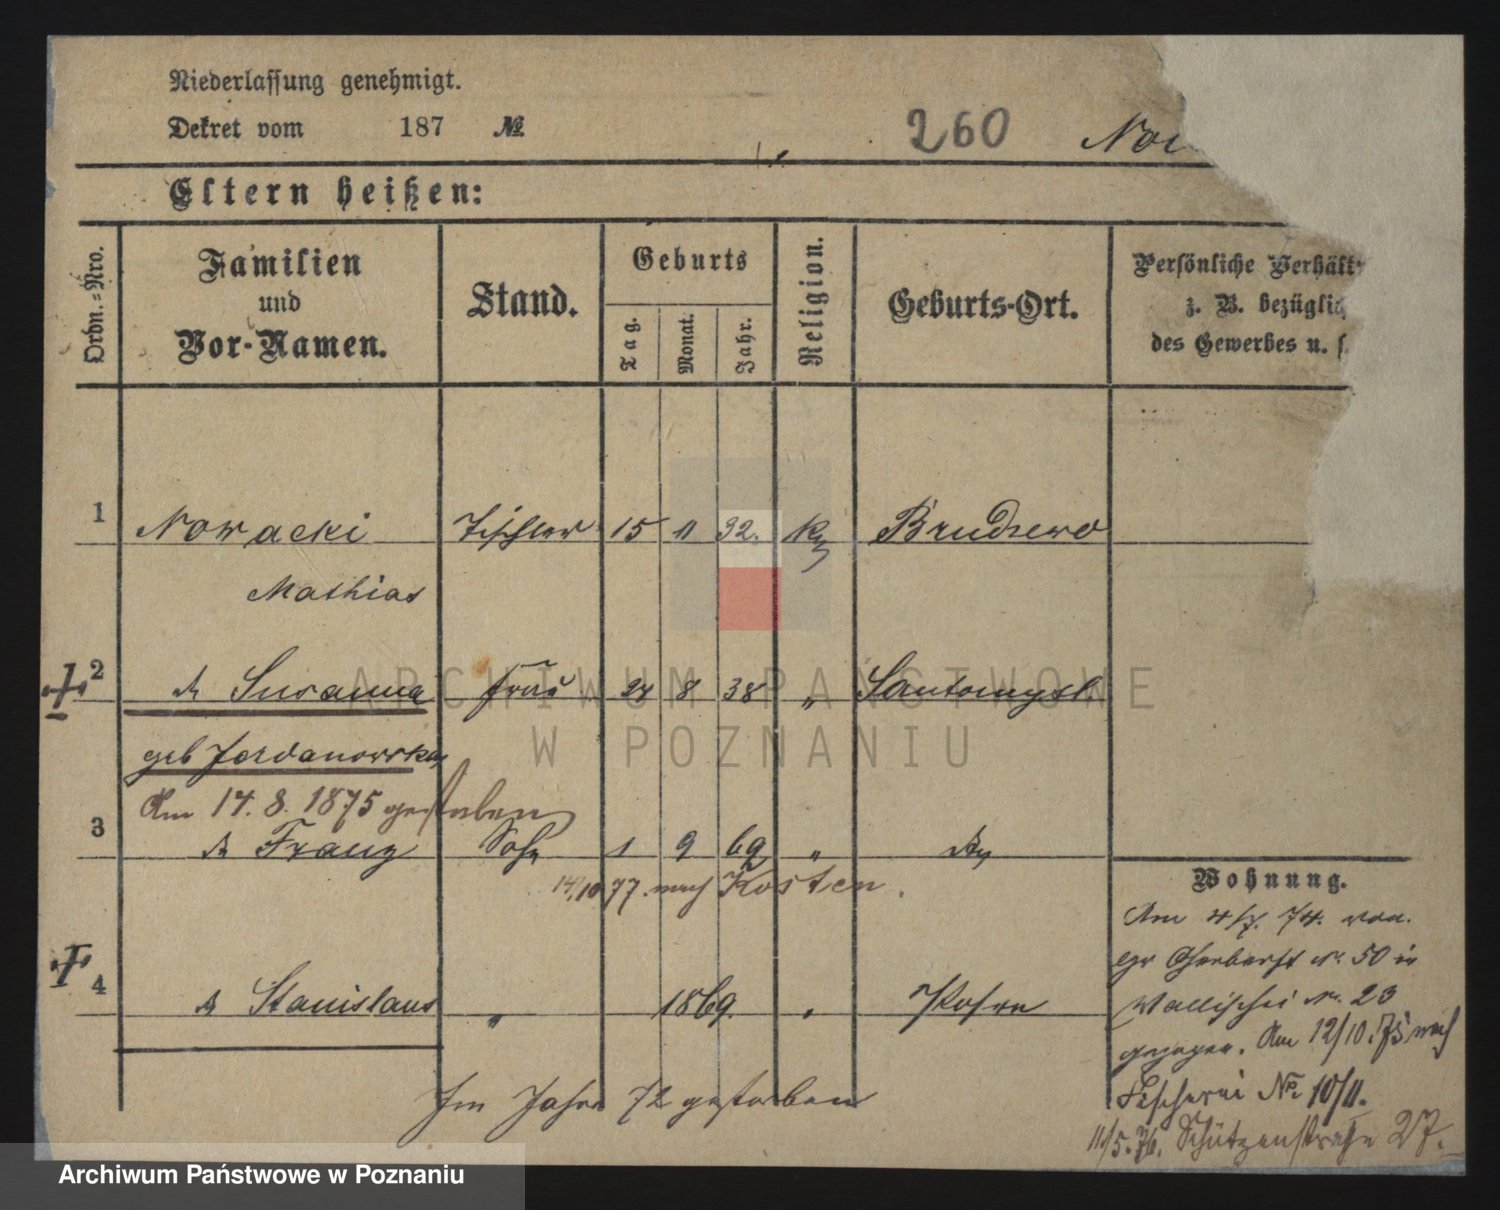 Niederlassung genehmigt.
Dekret vom 187 №
260 Now
Eltern heißen:
Ordn.=Nro.
Familien
und
Vor-Namen.
Stand.
Geburts
Tag.
Monat.
Jahr.
Religion.
Geburts-Ort.
Persönliche Verhält
z. B. bezüglich
des Gewerbes u. s.
1 Nowacki Tischler 15 11 32. Brudzewo
Mathias
2 Susanna Frau 24 8 38 " Santomysl.
geb Jordanowska
Am 14. 8. 1875 gestorben
3 Franz Sohn 1 9 69 "
14/10 77. nach Kosten.
4 Stanislaus " 1869. " Posen
Im Jahre 72 gestorben
Wohnung.
Am 4/7. 74. von
gr Gerberst No. 50 in
Wallischei No. 23
gezogen. Am 12/10. 75 nach
Fischerei No 10/11.
11/5. 76. Schützenstraße 27.
ARCHIWUM PAŃSTWOWE
W POZNANIU
Archiwum Państwowe w Poznaniu